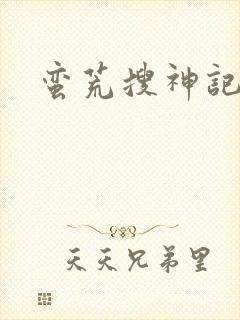 蛮荒搜神記
天天兄弟里